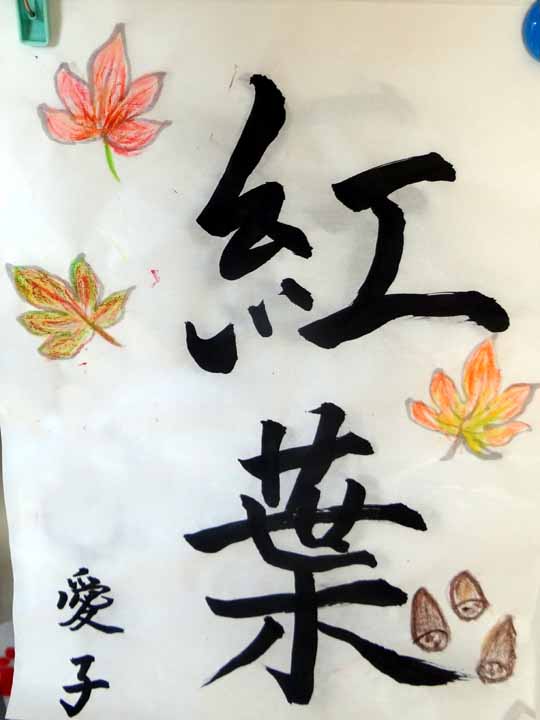 紅葉
愛子